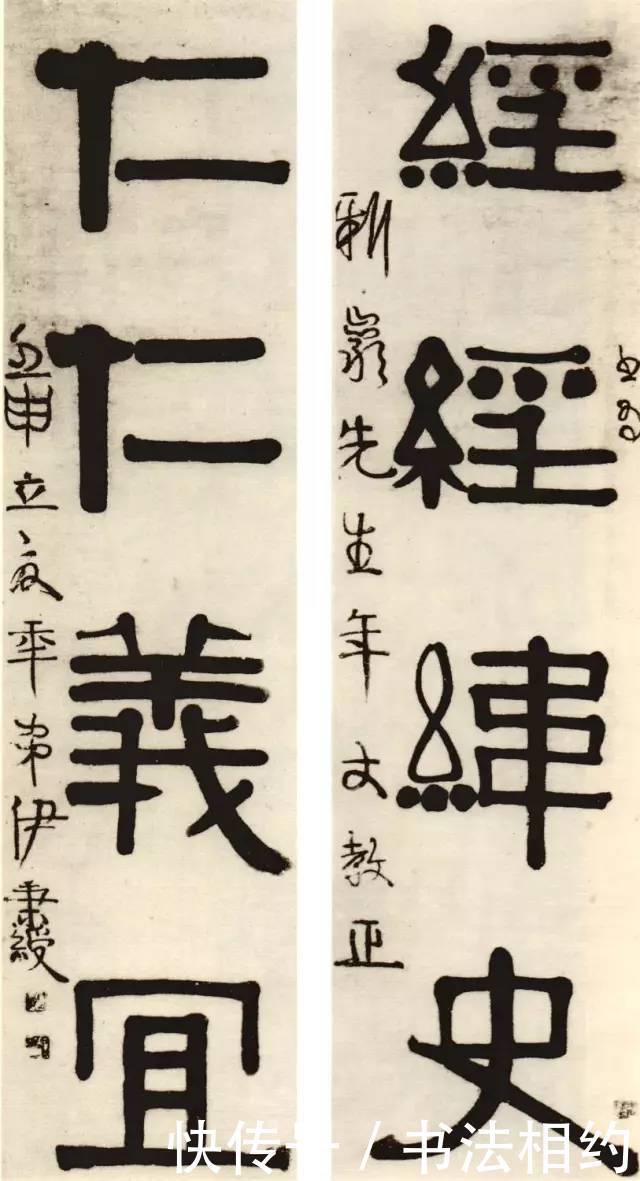 經經緯史
巖先生年丈教正
仁仁義宜
壬申立夏年弟伊秉綬
快传号 / 书法相约